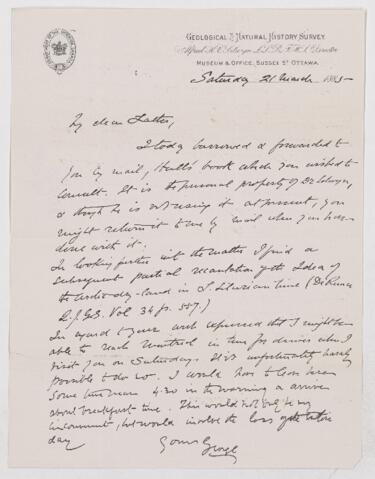 GEOLOGICAL & NATURAL HISTORY SURVEY.
Alfred R. C. Selwyn L.L.D. F.R.S. Director
MUSEUM & OFFICE, SUSSEX ST OTTAWA.
Saturday 21 March 1885
My dear Father,
I today borrowed & forwarded to
you by mail, Hull's book which you wished to
consult. It is the personal property of Dr Selwyn,
& though he is not using it at present, you
might return it to me by mail when you have
done with it.
In looking further into the matter I find a
subsequent partial recantation of the Idea of
the land in Silurian time (De Rance
Q.J.G.S. Vol 34 p. 557.)
In regard to your
able to reach Montreal in time for dinner when I
visit you on Saturdays. It is unfortunately barely
possible to do so. I would have to leave here
some time near 4.30 in the morning & arrive
about breakfast time. This would not only be
inconvenient, but would involve the loss of the whole
day
Yours George